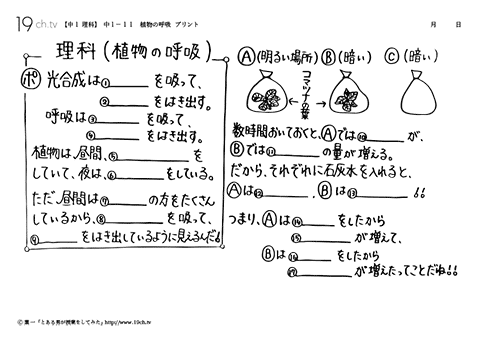 19ch.tv 【中1 理科】 中1-11 植物の呼吸 プリント 月 日
理科(植物の呼吸)
ポ 光合成は① を吸って、
② をはき出す。
呼吸は③ を吸って、
④ をはき出す。
植物は、昼間、⑤ を
していて、夜は、⑥ をしている。
ただ、昼間は⑦ の方をたくさん
しているから、⑧ を吸って、
⑨ をはき出しているように見えるんだ!
Ⓐ(明るい場所) Ⓑ(暗い) Ⓒ(暗い)
← コマツナの葉 →
数時間おいておくと、Ⓐでは⑩ が、
Ⓑでは⑪ の量が増える。
だから、それぞれに石灰水を入れると、
Ⓐは⑫ . Ⓑは⑬ !!
つまり、Ⓐは⑭ をしたから
⑮ が増えて、
Ⓑは⑯ をしたから
⑰ が増えたってことだね!!
© 葉一「とある男が授業をしてみた」http://www.19ch.tv